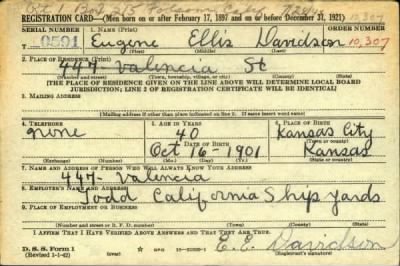 REGISTRATION CARD—(Men born on or after February 17, 1897 and on or before December 31, 1921)
SERIAL NUMBER 1. NAME (Print) ORDER NUMBER
0501 Eugene Ellis Davidson 10,307
(First) (Middle) (Last)
2. PLACE OF RESIDENCE (Print)
447 - Valencia St
(Number and street) (Town, township, village, or city) (County) (State)
[THE PLACE OF RESIDENCE GIVEN ON THE LINE ABOVE WILL DETERMINE LOCAL BOARD
JURISDICTION; LINE 2 OF REGISTRATION CERTIFICATE WILL BE IDENTICAL]
3. MAILING ADDRESS
[Mailing address if other than place indicated on line 2. If same insert word same]
4. TELEPHONE 5. AGE IN YEARS 6. PLACE OF BIRTH
none 40 Kansas City
DATE OF BIRTH (Town or county)
Oct 16 - 1901 Kansas
(Mo.) (Day) (Yr.) (State or country)
7. NAME AND ADDRESS OF PERSON WHO WILL ALWAYS KNOW YOUR ADDRESS
447 - Valencia
8. EMPLOYER'S NAME AND ADDRESS
Todd California Ship yards
9. PLACE OF EMPLOYMENT OR BUSINESS
(Number and street or R. F. D. number) (Town) (County) (State)
I AFFIRM THAT I HAVE VERIFIED ABOVE ANSWERS AND THAT THEY ARE TRUE.
D. S. S. Form 1
(Revised 1-1-42) E. E. Davidson